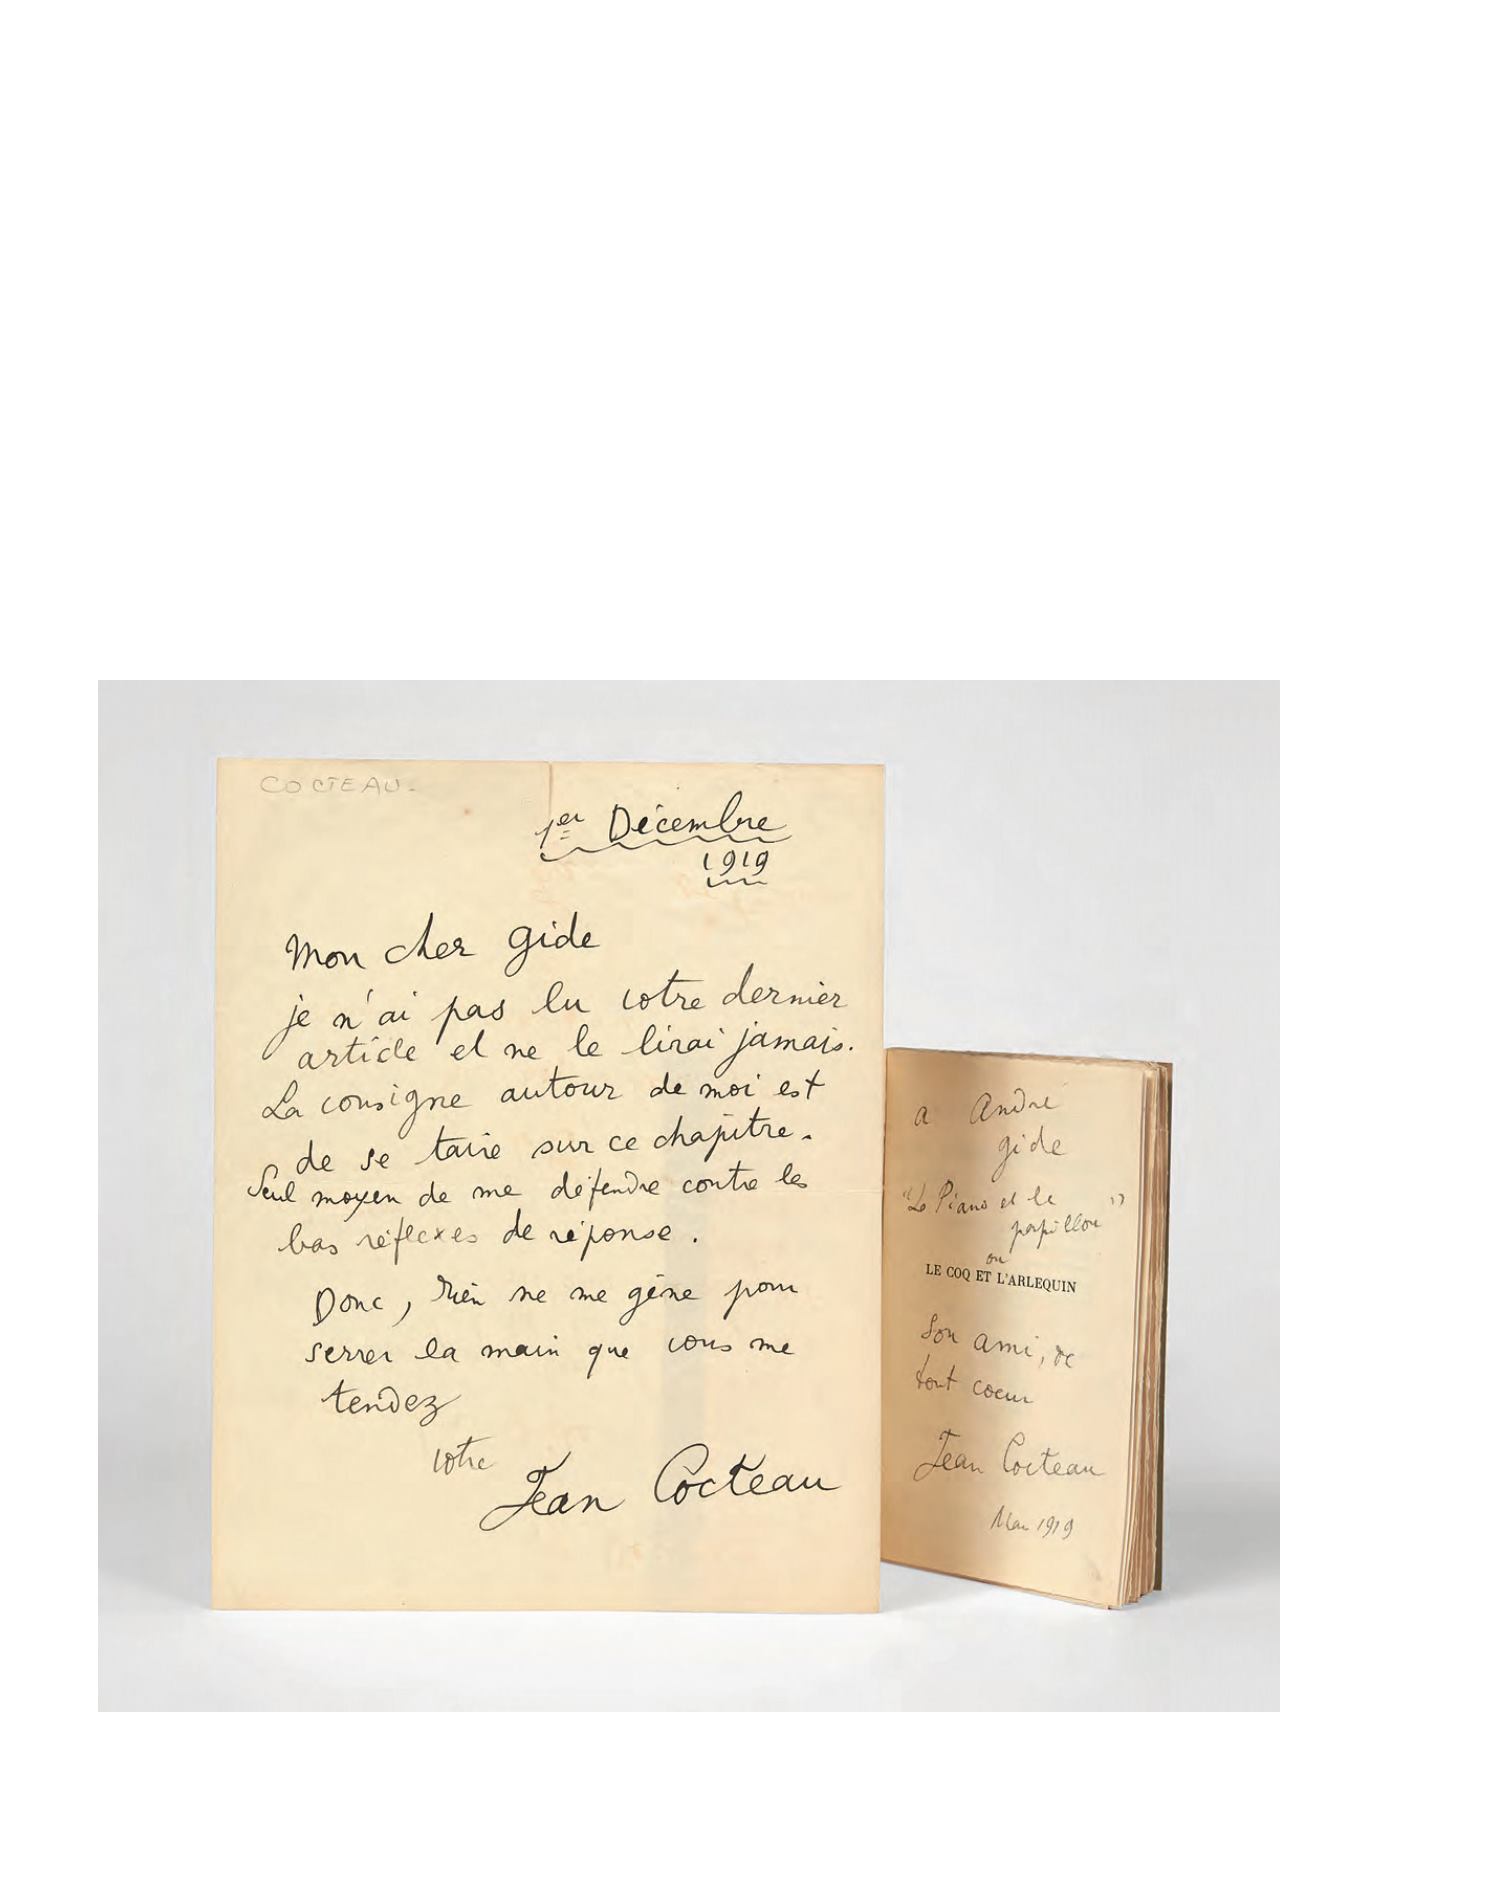 COCTEAU.
1er Décembre
1919
Mon cher Gide
je n'ai pas lu votre dernier
article et ne le lirai jamais.
La consigne autour de moi est
de se taire sur ce chapitre.
Seul moyen de me défendre contre les
bas réflexes de réponse.
Donc, rien ne me gêne pour
serrer la main que vous me
tendez
votre
Jean Cocteau
a André
Gide
"Le Piano et le
papillon"
ou
LE COQ ET L'ARLEQUIN
Son ami, de
tout coeur
Jean Cocteau
Mai 1919